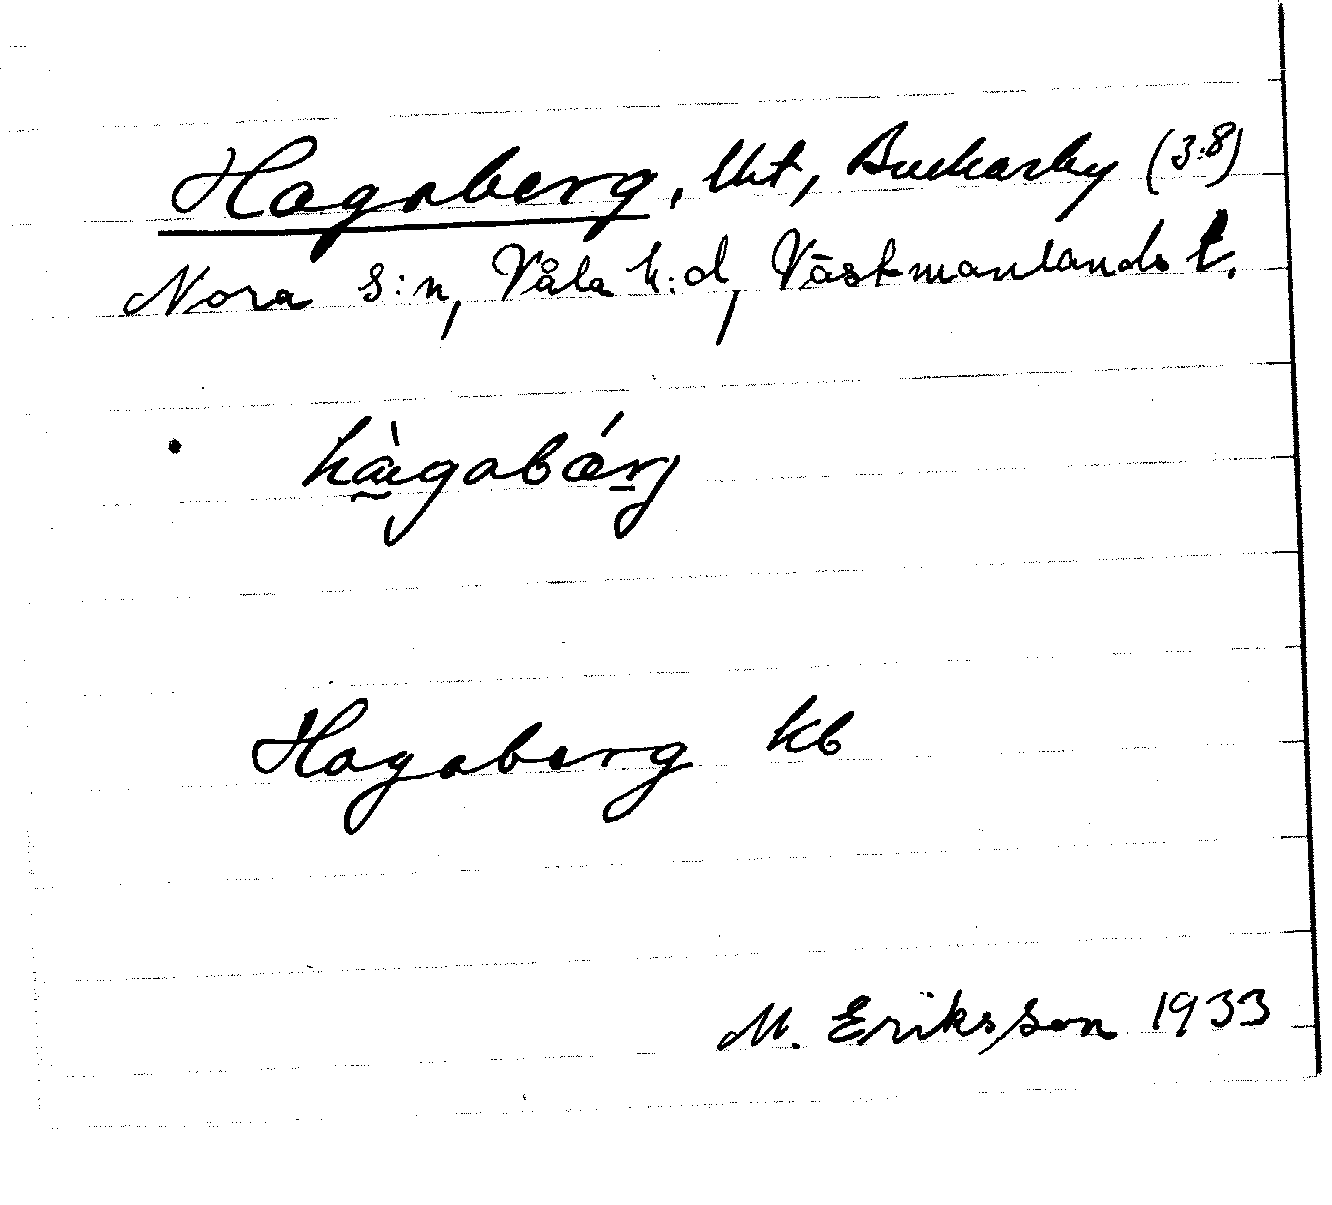 Hagaberg, lht, Buckarby (3:8)
Nora s:n, Våla h:d, Västmanlands l.
Hagaberg kb
M. Eriksson 1933